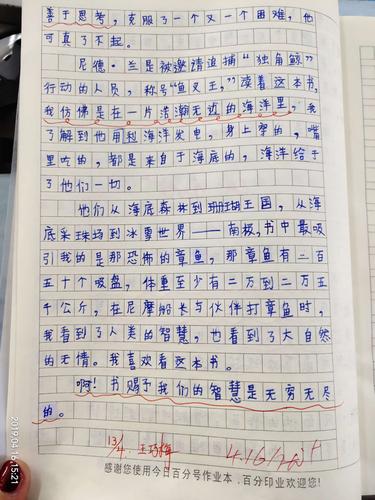 善于思考，克服了一个又一个困难，他
可真了不起。
尼德·兰是被邀请追捕“独角鲸”
行动的人员，称号“鱼叉王，”读着这本书，
我仿佛是在一片浩瀚无边的海洋里，我
了解到他用利海洋发电，身上穿的，嘴
里吃的，都是来自于海底的，海洋给于
了他们一切。
他们从海底森林到珊瑚王国，从海
底采珠场到冰雪世界——南极，书中最吸
引我的是那恐怖的章鱼，那章鱼有二百
五十个吸盘，体重至少有二万到二万五
千公斤，在尼摩船长与伙伴打章鱼时，
我看到了人美的智慧，也看到了大自然
的无情。我喜欢看这本书。
啊！书赐予我们的智慧是无穷无尽
的。
13/4.
4.16
感谢您使用今日百分号作业本，百分印业欢迎您！
2019.04.16 15:21